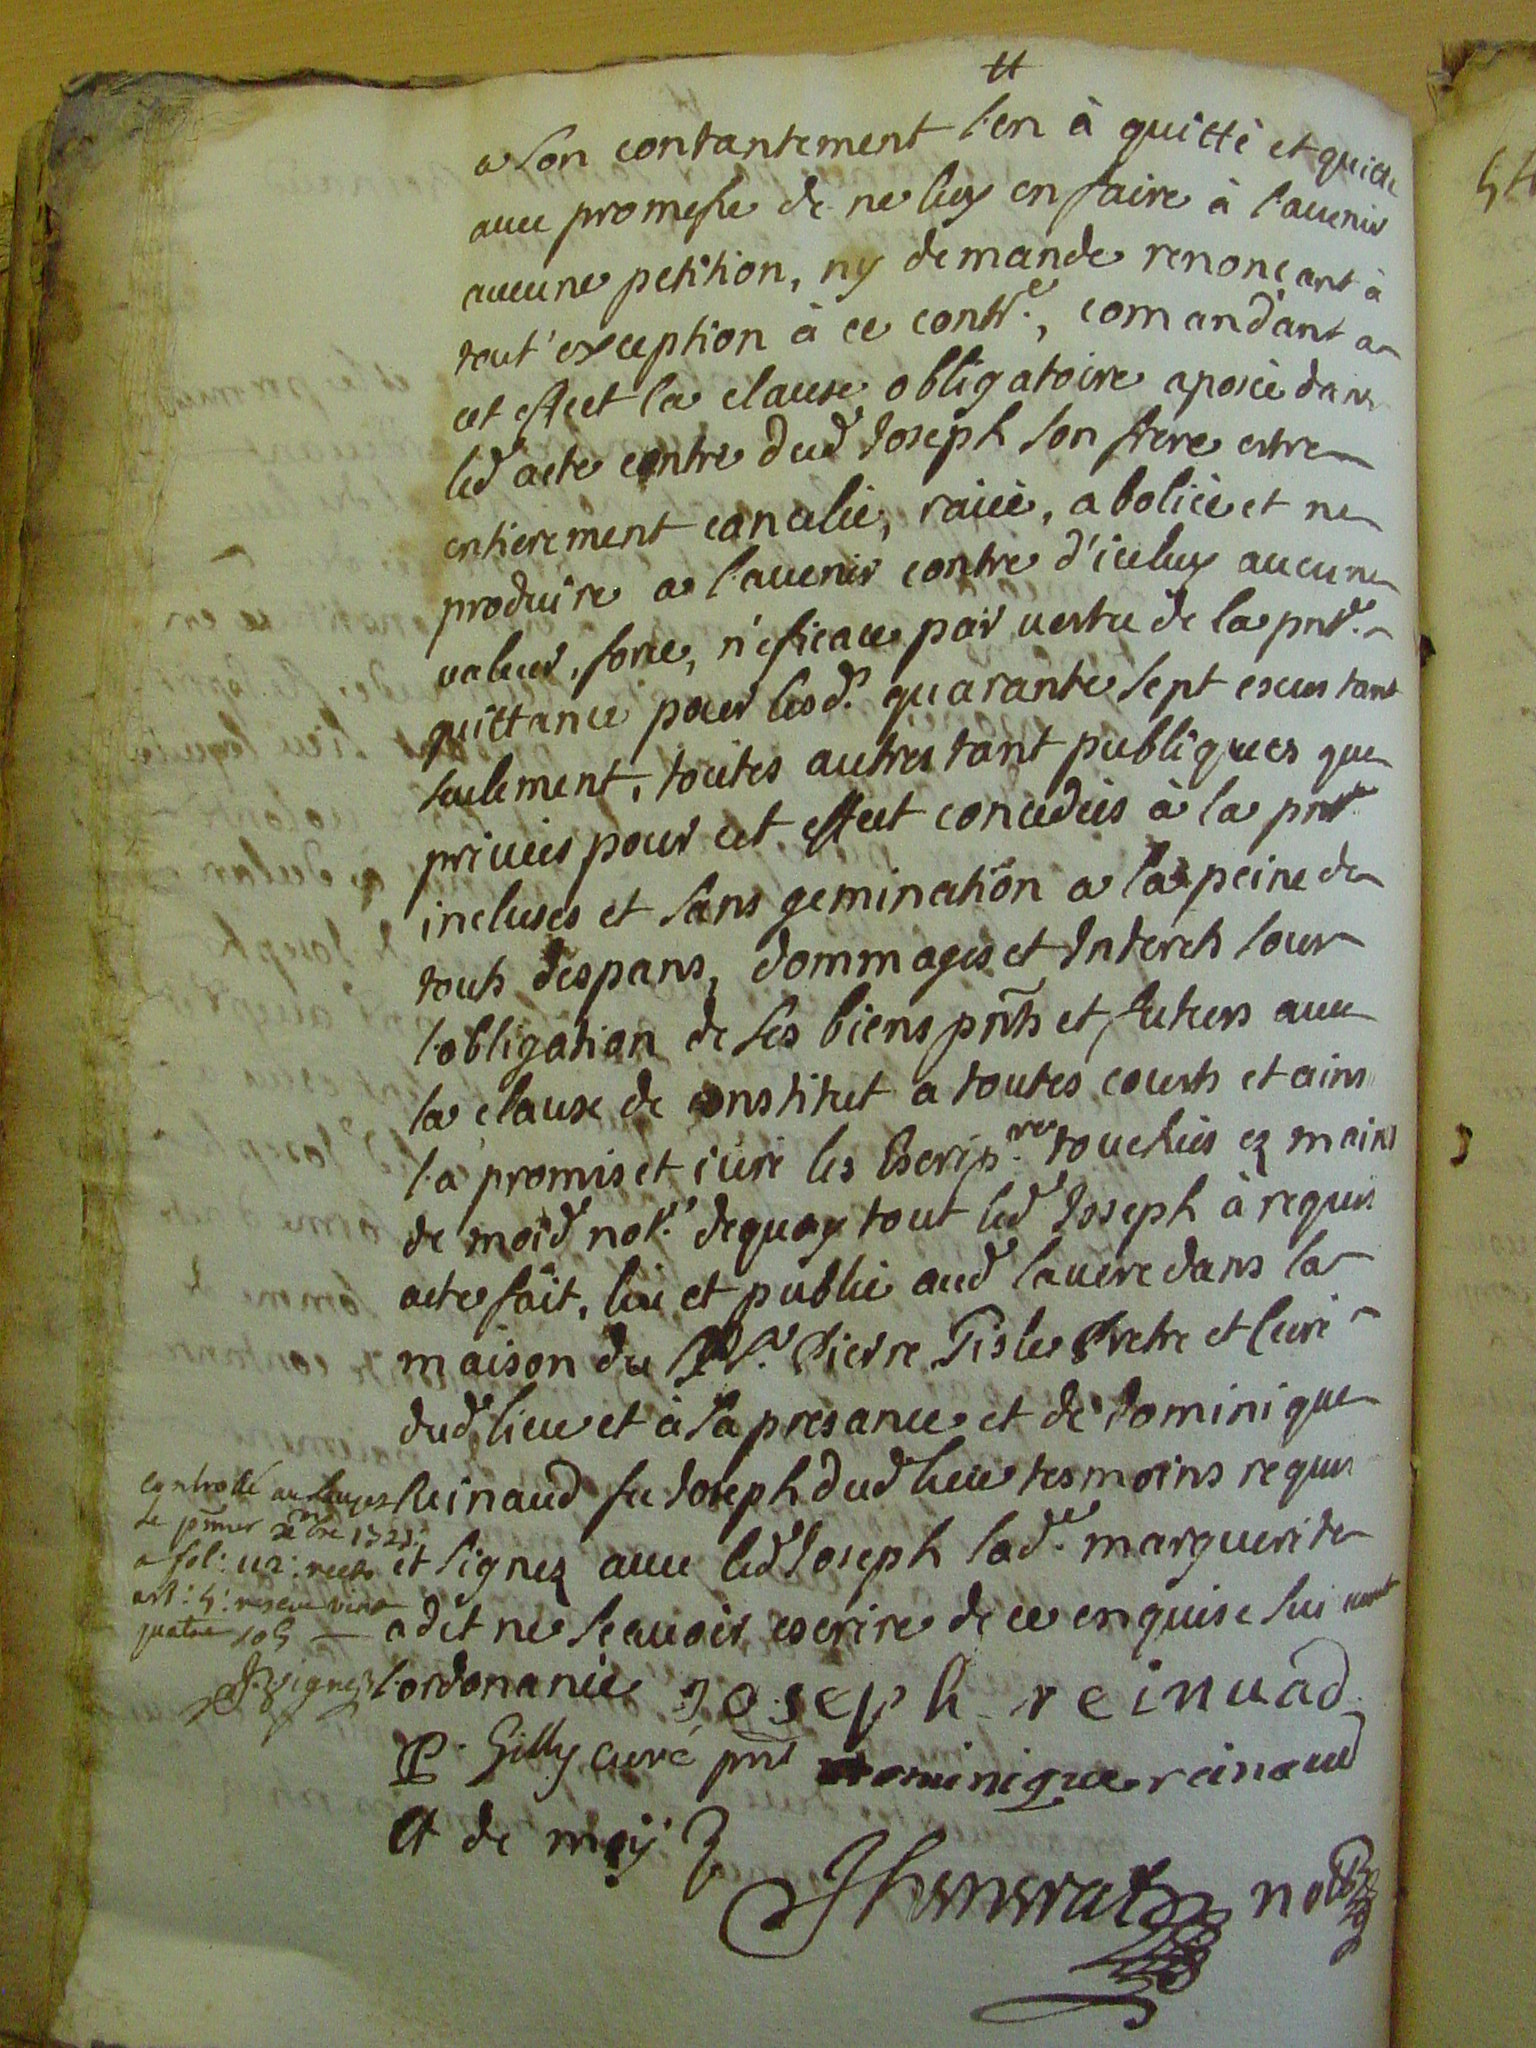 a son contantement l'en à quitté et quitte
avec promesse de ne luy en faire à l'avenir
aucune petition, ny demande renonçant à
tout' exception à ce contr.e, comandant a
cet effect la clause obligatoire aposèe dans
led acte contre dud Joseph son frere estre
entierement cancelée, raièe, abolièe et ne
produire a l'avenir contre d'iceluy aucune
valeur, force, n'eficace par vertu de la pnte.
quittance pour lesd.s quarante sept escus tant
seulement, toutes autres tant publiques que
privées pour cet effect concedées à la pnte
incluses et sans gemination a la peine de
touts despans, dommages et Interets sour
l'obligation de ses biens pnts et futeurs avec
la clause de constitut a toutes courts et ainsi
l'a promis et iuré les Escrip.res touchées ez mains
de moid not.e dequoy tout led Joseph à requis
acte fait, leu et publié aud lavere dans la
maison du Sr. Pierre Pretre et Curé
dud lieu et à sa presance et de Dominique
Reinaud fu Joseph dud lieu tesmoins requis
et signez avec led Joseph lad.e marguerite
a dit ne scavoir escrire de ce enquise suivant
l'ordonance Joseph reinuad
P. Gilly curé pnt Dominique reinaud
Et de moy
not
controllé au
le pmier 1723
a fol: 112: recto
art: 5: receu vint
quatre sols